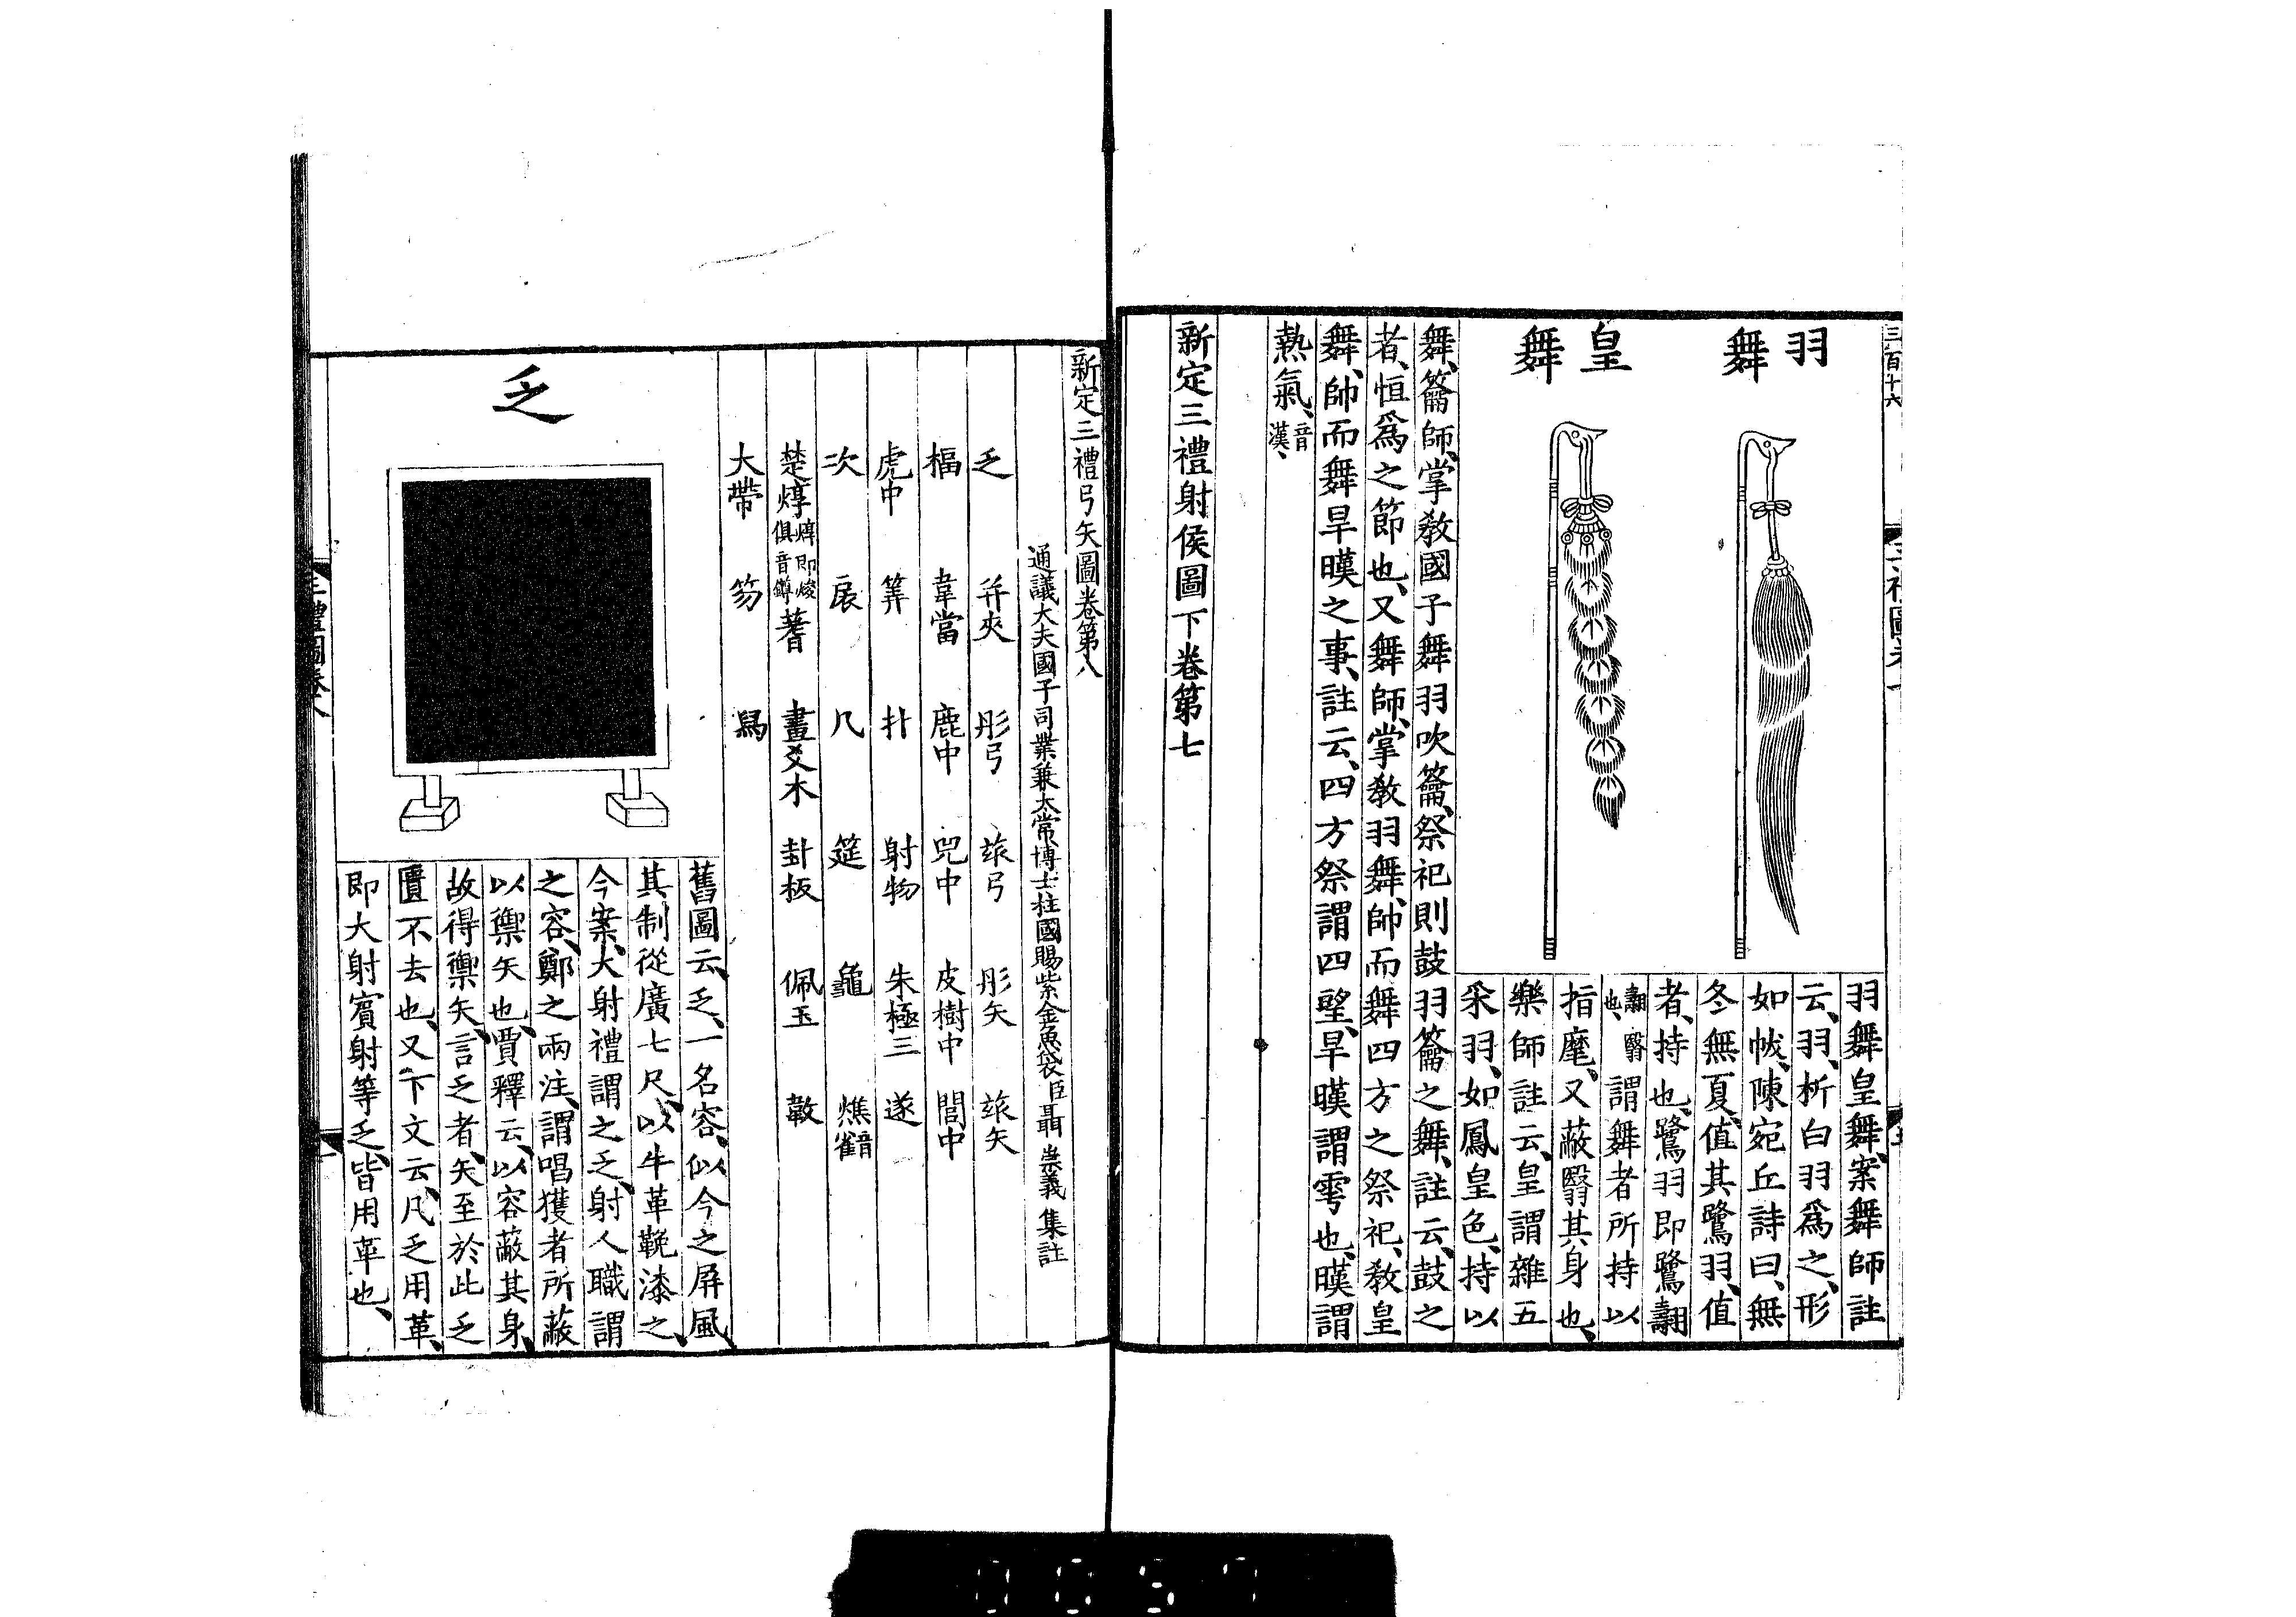 三百十六
羽舞
皇舞
羽舞皇舞、案舞師註
云、羽、析白羽爲之、形
如帗、陳宛丘詩曰、無
冬無夏、值其鷺羽、值
者、持也、鷺羽即鷺翿
翿翳也、謂舞者所持以
指麾、又蔽翳其身也、
樂師註云、皇謂雜五
采羽、如鳳皇色、持以
舞、籥師、掌教國子舞羽吹籥、祭祀則鼓羽籥之舞、註云、鼓之
者、恒爲之節也、又舞師、掌教羽舞、帥而舞四方之祭祀、教皇
舞、帥而舞旱暵之事、註云、四方祭謂四望、旱暵謂雩也、暵謂
熱氣、音漢、
新定三禮射侯圖下卷第七
新定三禮弓矢圖卷第八
通議大夫國子司業兼太常博士柱國賜紫金魚袋臣聶崇義集註
乏 并夾 彤弓 玈弓 彤矢 玈矢
楅 韋當 鹿中 兕中 皮樹中 閭中
虎中 筭 扑 射物 朱極三 遂
次 扆 几 筵 龜 燋音雀
楚焞焞即焌俱音鐏 蓍 畫爻木 卦板 佩玉 韍
大帶 笏 舄
乏
舊圖云、乏、一名容、似今之屏風、
其制從廣七尺、以牛革鞔漆之、
今案、大射禮謂之乏、射人職謂
之容、鄭之兩注、謂唱獲者所蔽
以禦矢也、賈釋云、以容蔽其身、
故得禦矢、言乏者、矢至於此乏
匱不去也、又下文云、凡乏用革、
即大射賓射等乏、皆用革也、
三禮圖卷八